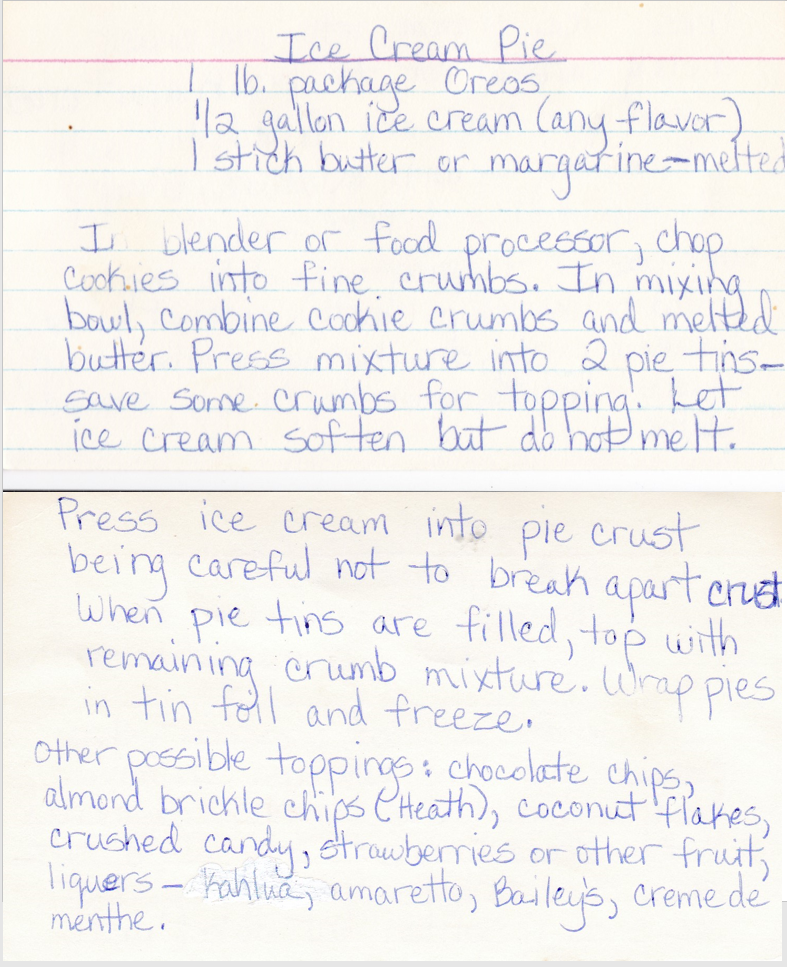 Ice Cream Pie
1 lb. package Oreos
1/2 gallon ice cream (any flavor)
1 stick butter or margarine-melted
In blender or food processor, chop
cookies into fine crumbs. In mixing
bowl, combine cookie crumbs and melted
butter. Press mixture into 2 pie tins-
save some crumbs for topping. Let
ice cream soften but do not melt.
Press ice cream into pie crust
being careful not to break apart crust
When pie tins are filled, top with
remaining crumb mixture. Wrap pies
in tin foil and freeze.
Other possible toppings: chocolate chips,
almond brickle chips (Heath), coconut flakes,
crushed candy, strawberries or other fruit,
liquers - Kahlua, amaretto, Bailey's, creme de
menthe.